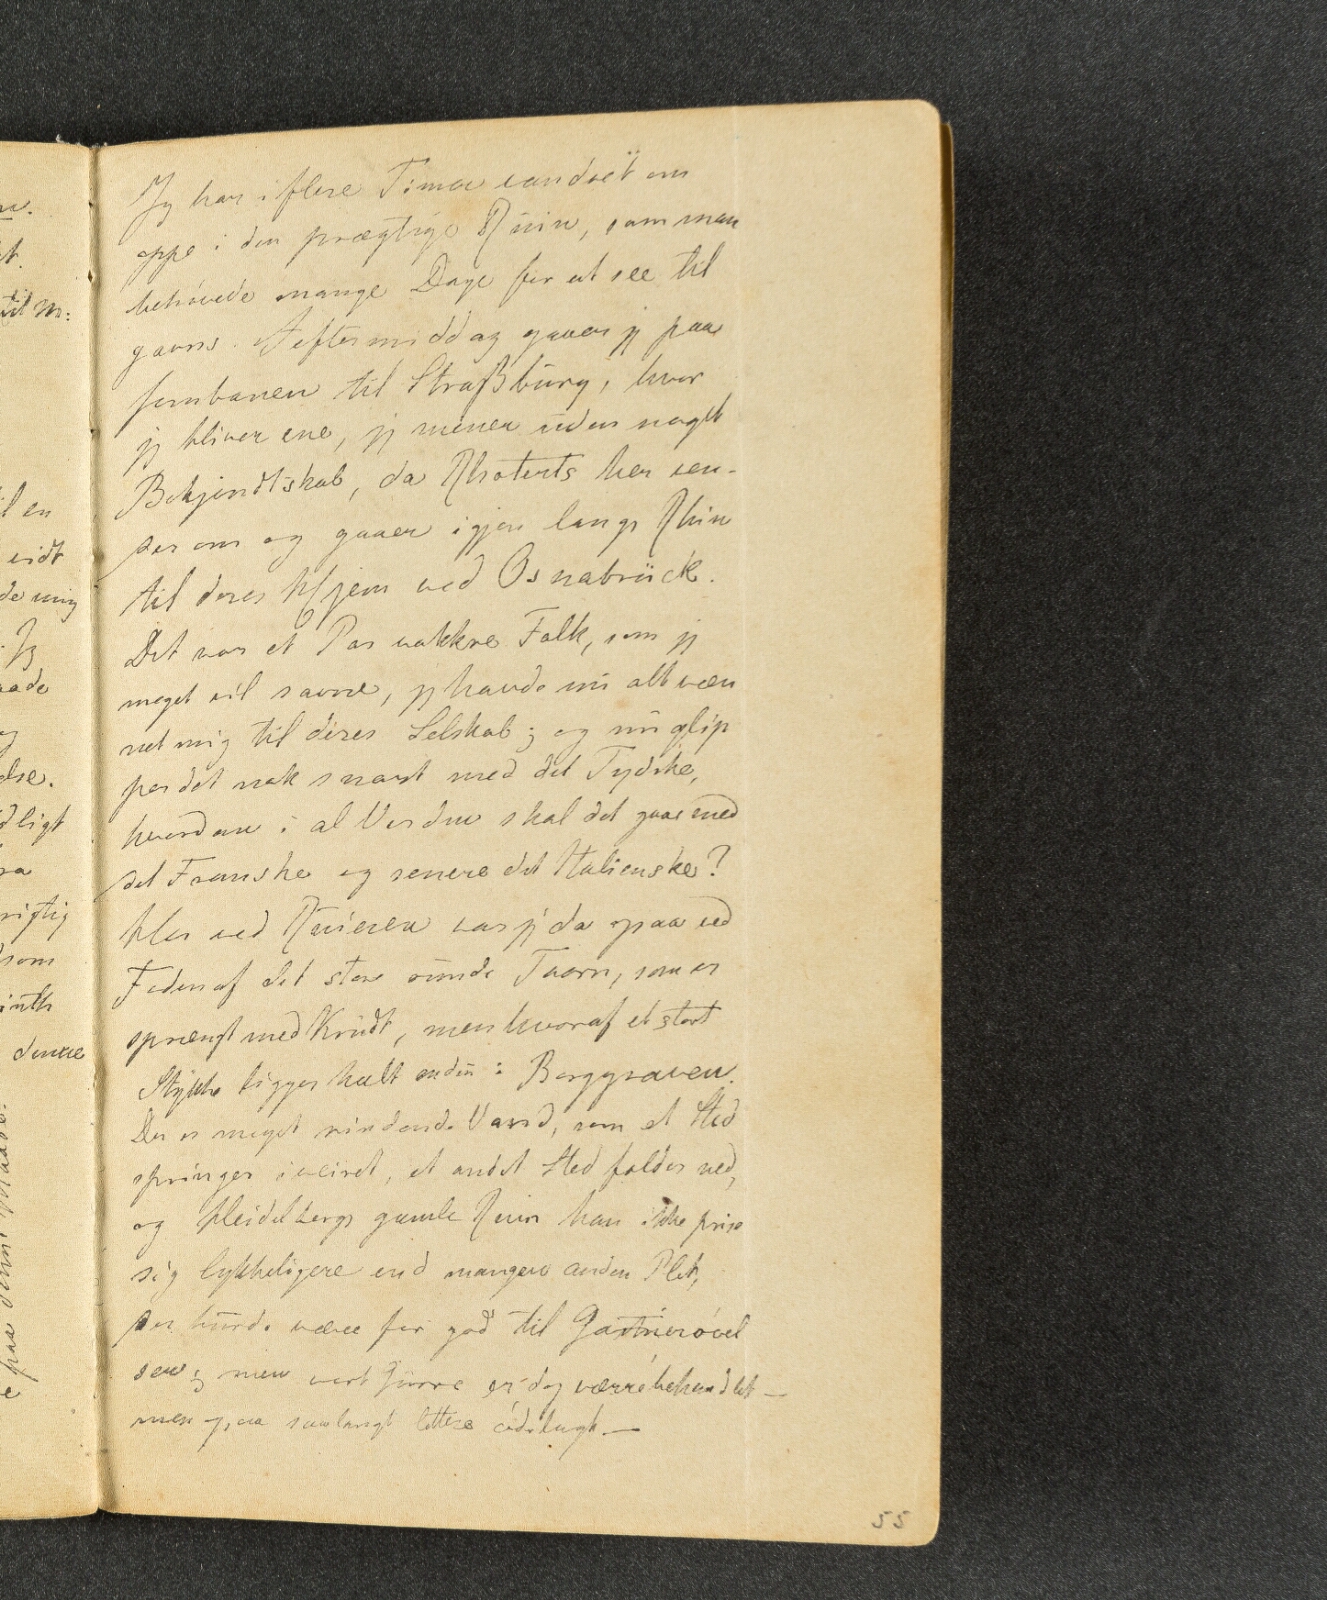 Jeg har i flere Timer vandret om
oppe i den prægtige Ruin, som man
behøvede mange Dage for at see til
gavns. I eftermiddag gaaer jeg paa
Jernbanen til Straßburg, hvor
jeg bliver ene, jeg mener uden noget
Bekjendtskab, da Rhoterts her ven-
der om og gaaer igjen langs Rhin
til deres Hjem ved Osnabrück.
Det var et Par vakkre Folk, som jeg
meget vil savne, jeg havde nu alt væn
net mig til deres Selskab; og nu glip
per det nok snart med det Tydske,
hvordan i al Verden skal det gaae med
det Franske og senere det Italienske?
Her ved Ruinen var jeg da ogsaa ved
Foden af det store runde Taarn, som er
sprængt med Krudt, men hvoraf et stort
Stykke ligger heelt nede i Borggraven.
Der er meget rindende Vand, som et Sted
springer iveiret, et andet Sted falder ned,
og Heidelbergs gamle Ruin kan ikke prise
sig lykkeligere end mangen anden Plet,
der burde være for god til Gartnerøvel
sen; men vort Gurre er dog værre behandlet —
men ogsaa saalangt lettere ødelagt. —
til en
vidt
de mig
Jeg
aade
else.
dligt
ra
rigtig
som
inth
denne
55